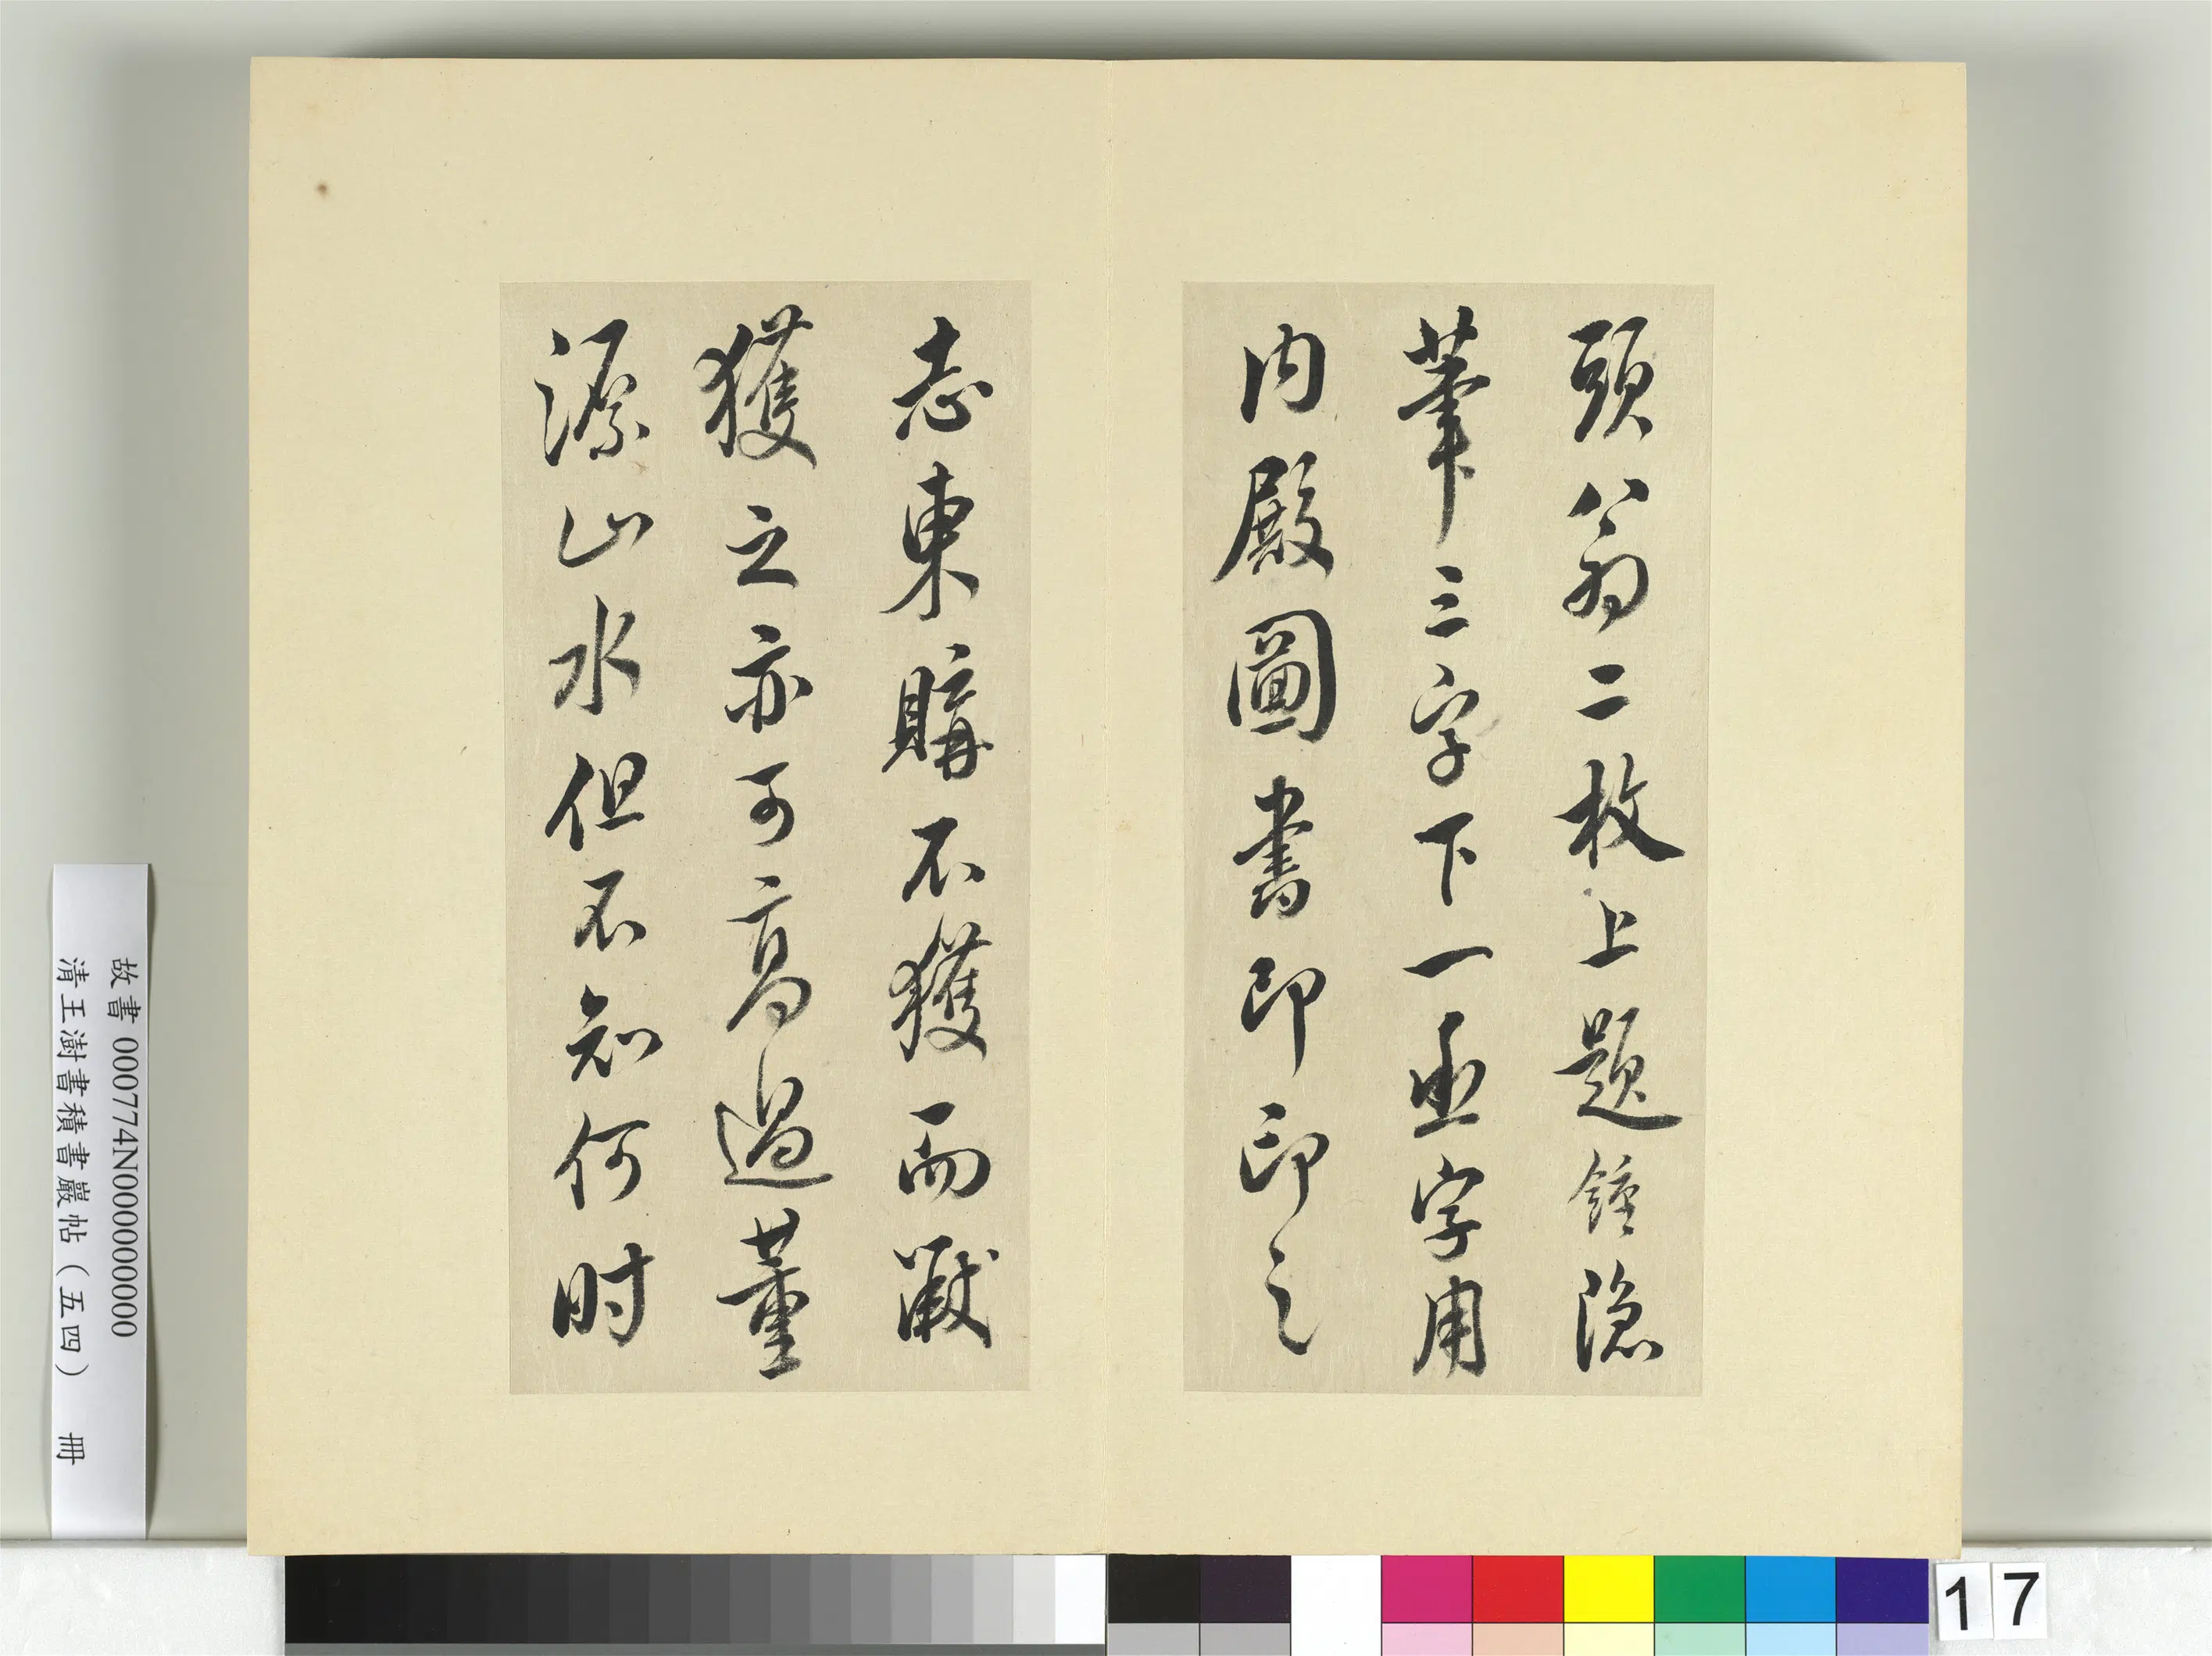 頭翁二枚上題鍾隱
筆三字下一亟字用
内殿圖書印印之
志東購不獲而厳
獲之亦可高過董
源山水但不知何时
故書 000774N000000000
清王澍書積書巖帖（五四） 冊
17